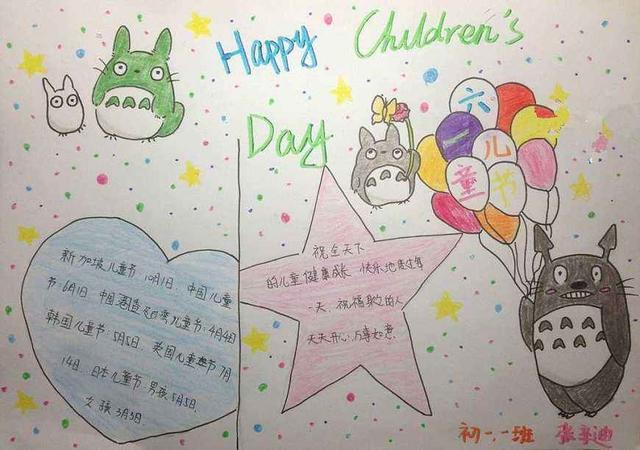 Happy Children's
Day
六一儿童节
新加坡儿童节10月1日.中国儿童
节.6月1日 中国
儿童节.4月4日
韩国儿童节:5月5日 英国儿童节7月
14日.日本儿童节.男孩5月5日.
女孩3月3日.
祝全天下
的儿童健康成长 快乐地度过每
一天.祝福
的人
天天开心.万事如意.
初一.一班